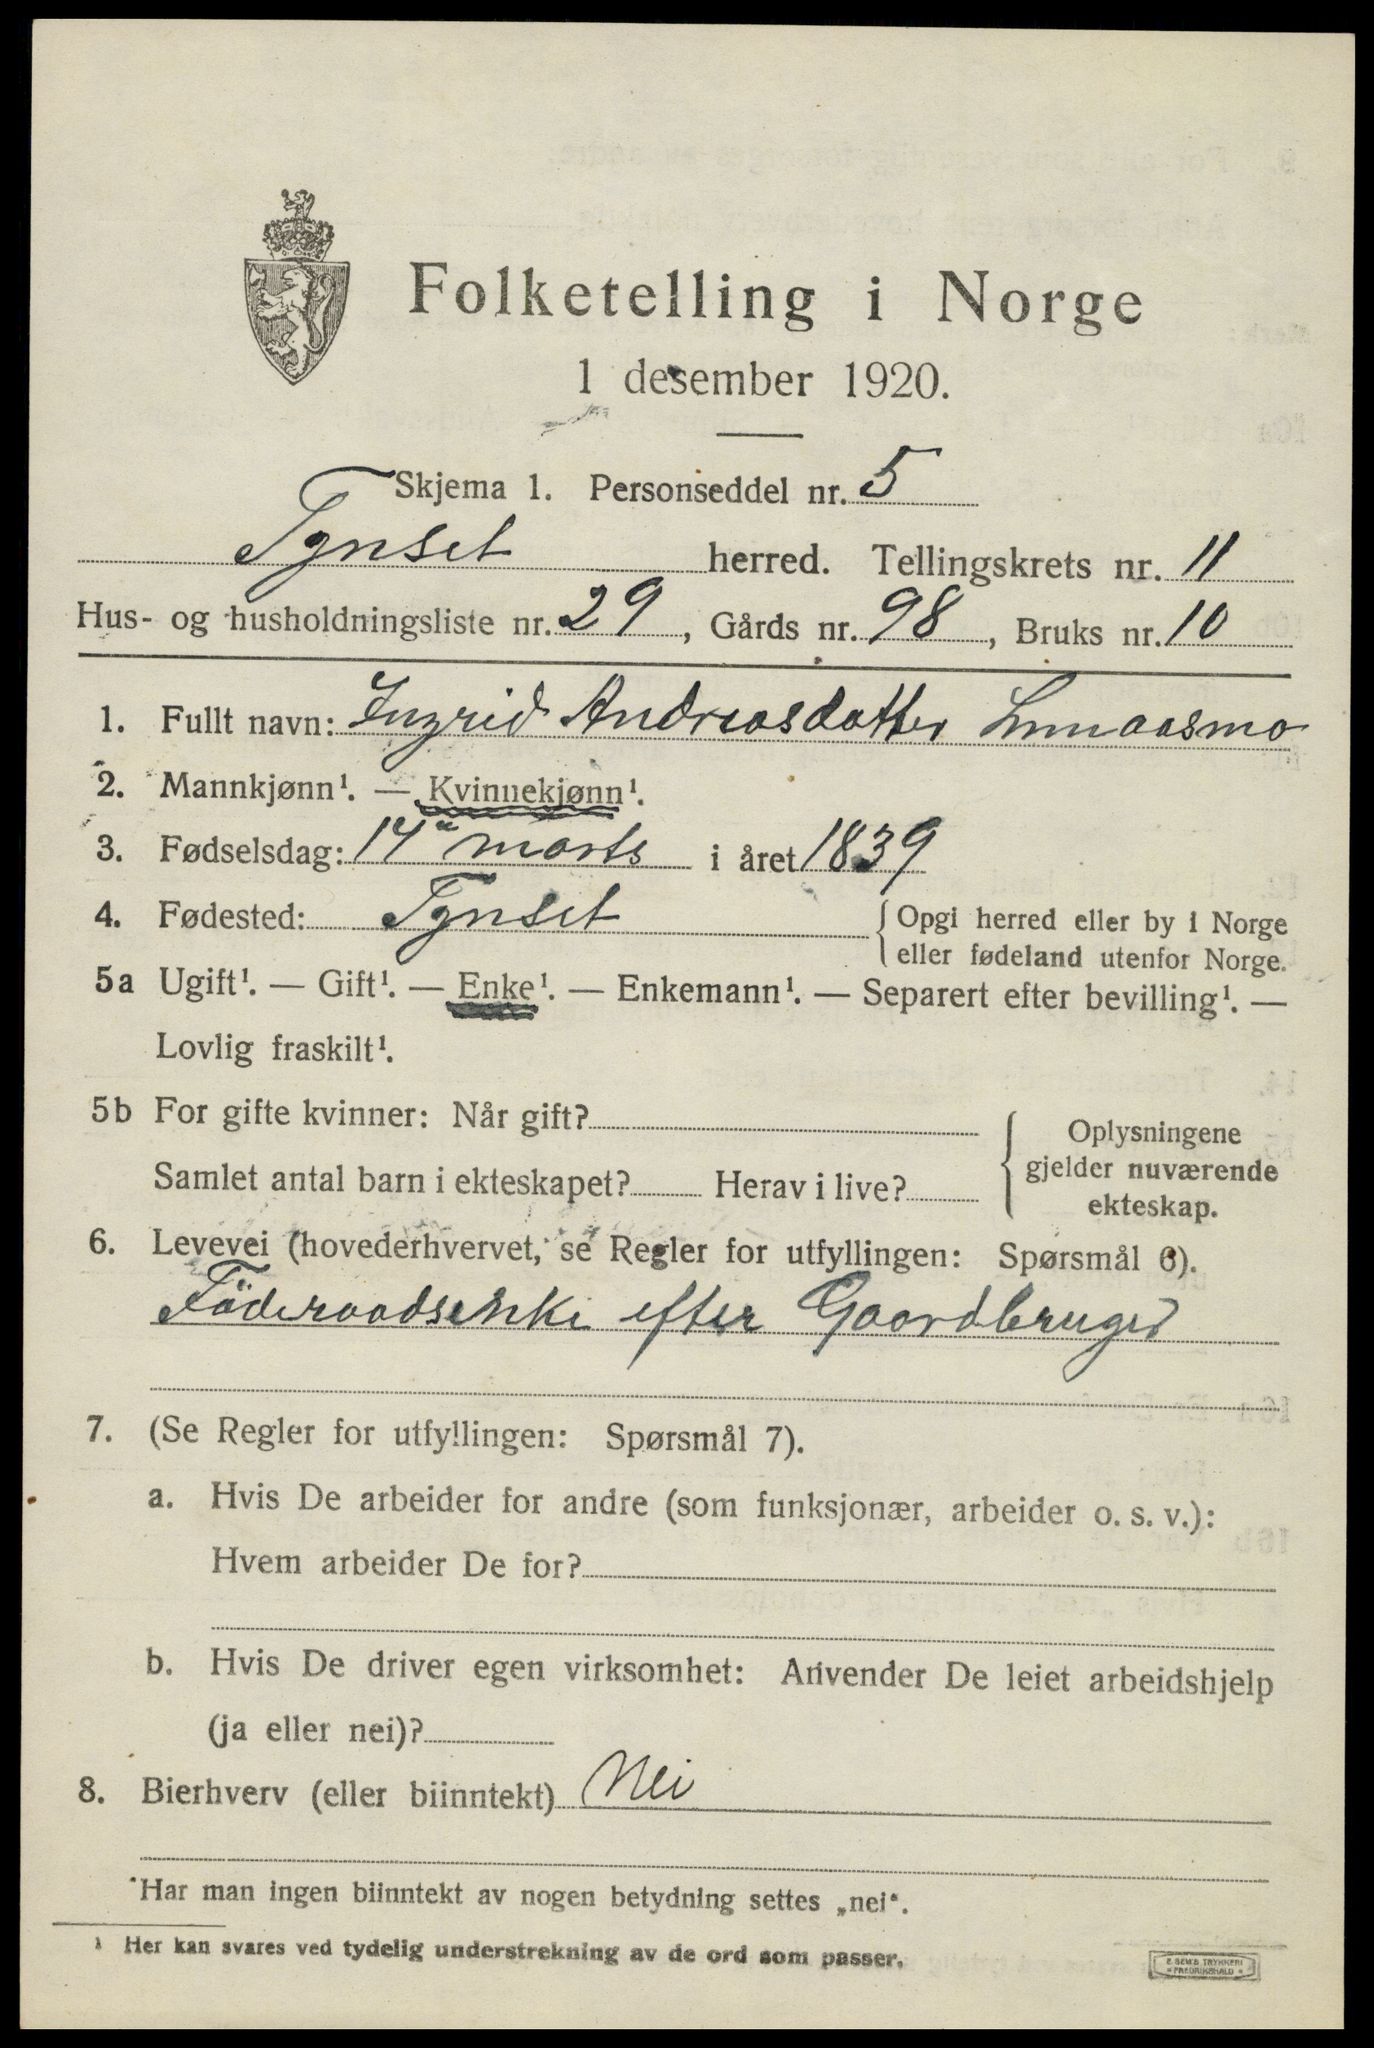 Folketelling i Norge
1 desember 1920.
Skjema 1. Personseddel nr. 5
Tynset herred. Tellingskrets nr. 11
Hus- og husholdningsliste nr. 29, Gårds nr. 98, Bruks nr. 10
1. Fullt navn: Ingrid Andreasdatter
2. Mannkjønn¹. — Kvinnekjønn¹.
3. Fødselsdag: 14de marts i året 1839
4. Fødested: Tynset {Opgi herred eller by i Norge
eller fødeland utenfor Norge.
5a Ugift¹. — Gift¹. — Enke¹. — Enkemann¹. — Separert efter bevilling¹. —
Lovlig fraskilt¹.
5b For gifte kvinner: Når gift?
Samlet antal barn i ekteskapet? Herav i live?
Oplysningene
gjelder nuværende
ekteskap.
6. Levevei (hovederhvervet, se Regler for utfyllingen: Spørsmål 6).
Föderaadsenke efter Gaardbruger
7. (Se Regler for utfyllingen: Spørsmål 7).
a. Hvis De arbeider for andre (som funksjonær, arbeider o. s. v.):
Hvem arbeider De for?
b. Hvis De driver egen virksomhet: Anvender De leiet arbeidshjelp
(ja eller nei)?
8. Bierhverv (eller biinntekt) Nei
*Har man ingen biinntekt av nogen betydning settes „nei“.
¹ Her kan svares ved tydelig understrekning av de ord som passer.
E. SEM'S TRYKKERI
FREDRIKSHALD